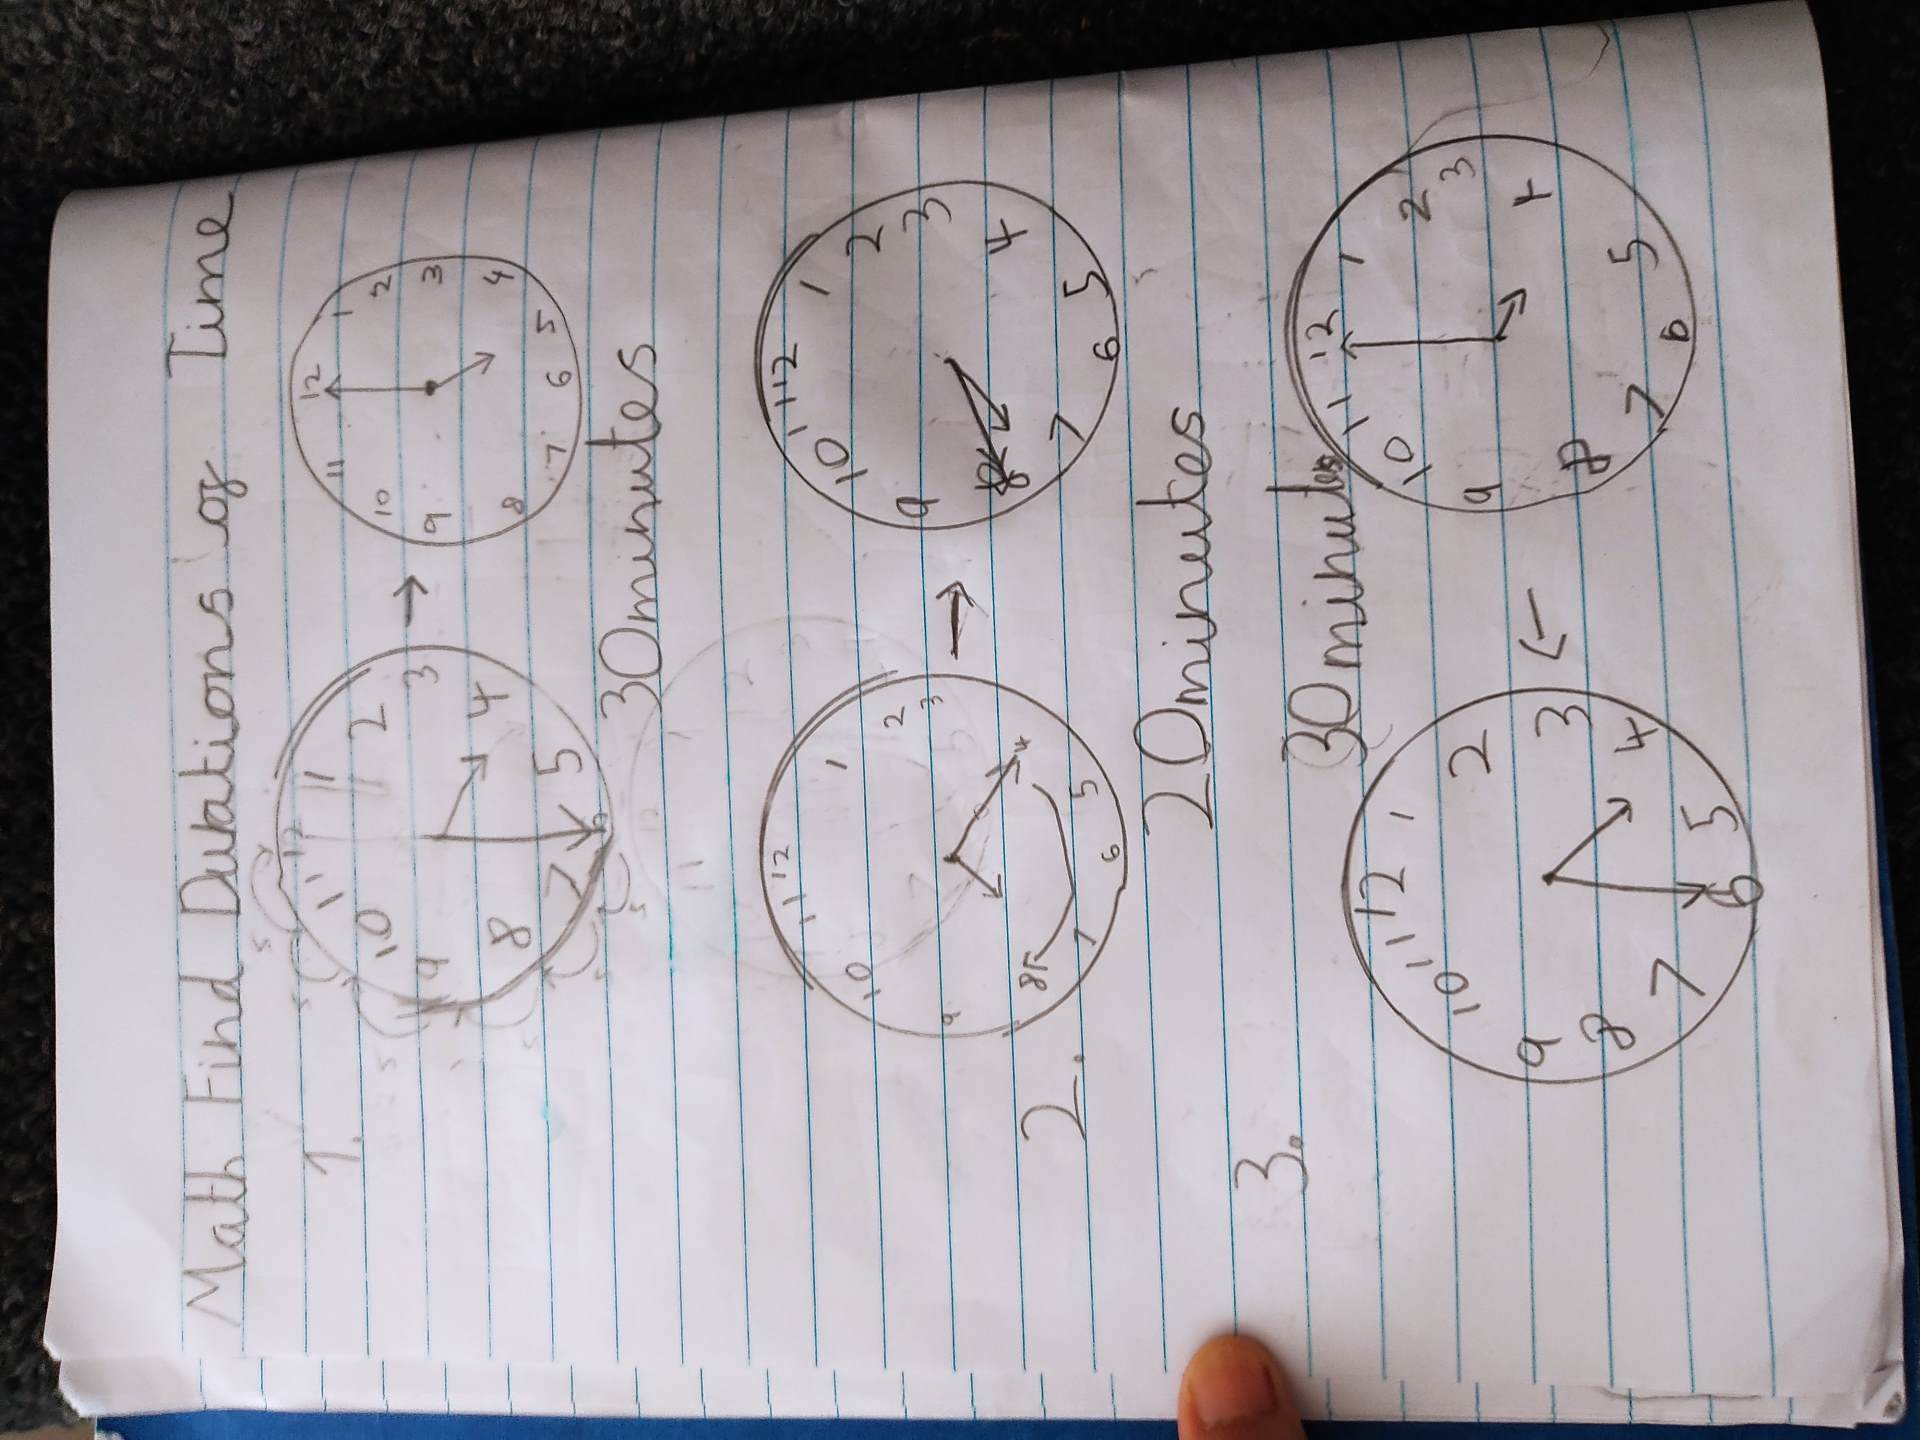 Math Find Durations of Time
1.
12 1 2 3 4 5 6 7 8 9 10 11
→
12 1 2 3 4 5 6 7 8 9 10 11
30 minutes
2.
12 1 2 3 4 5 6 7 8 9 10 11
→
12 1 2 3 4 5 6 7 8 9 10 11
20 minutes
3.
30 minutes
12 1 2 3 4 5 6 7 8 9 10 11
←
12 1 2 3 4 5 6 7 8 9 10 11